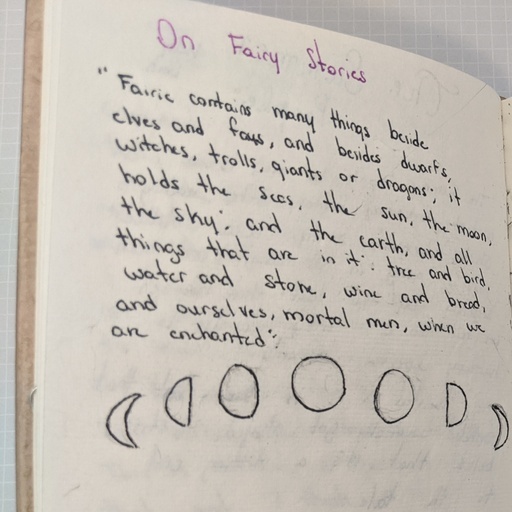 On Fairy Stories
"Fairie contains many things beside
elves and fays, and besides dwarfs,
witches, trolls, giants or dragons; it
holds the seas, the sun, the moon,
the sky; and the earth, and all
things that are in it: tree and bird,
water and stone, wine and bread,
and ourselves, mortal men, when we
are enchanted".